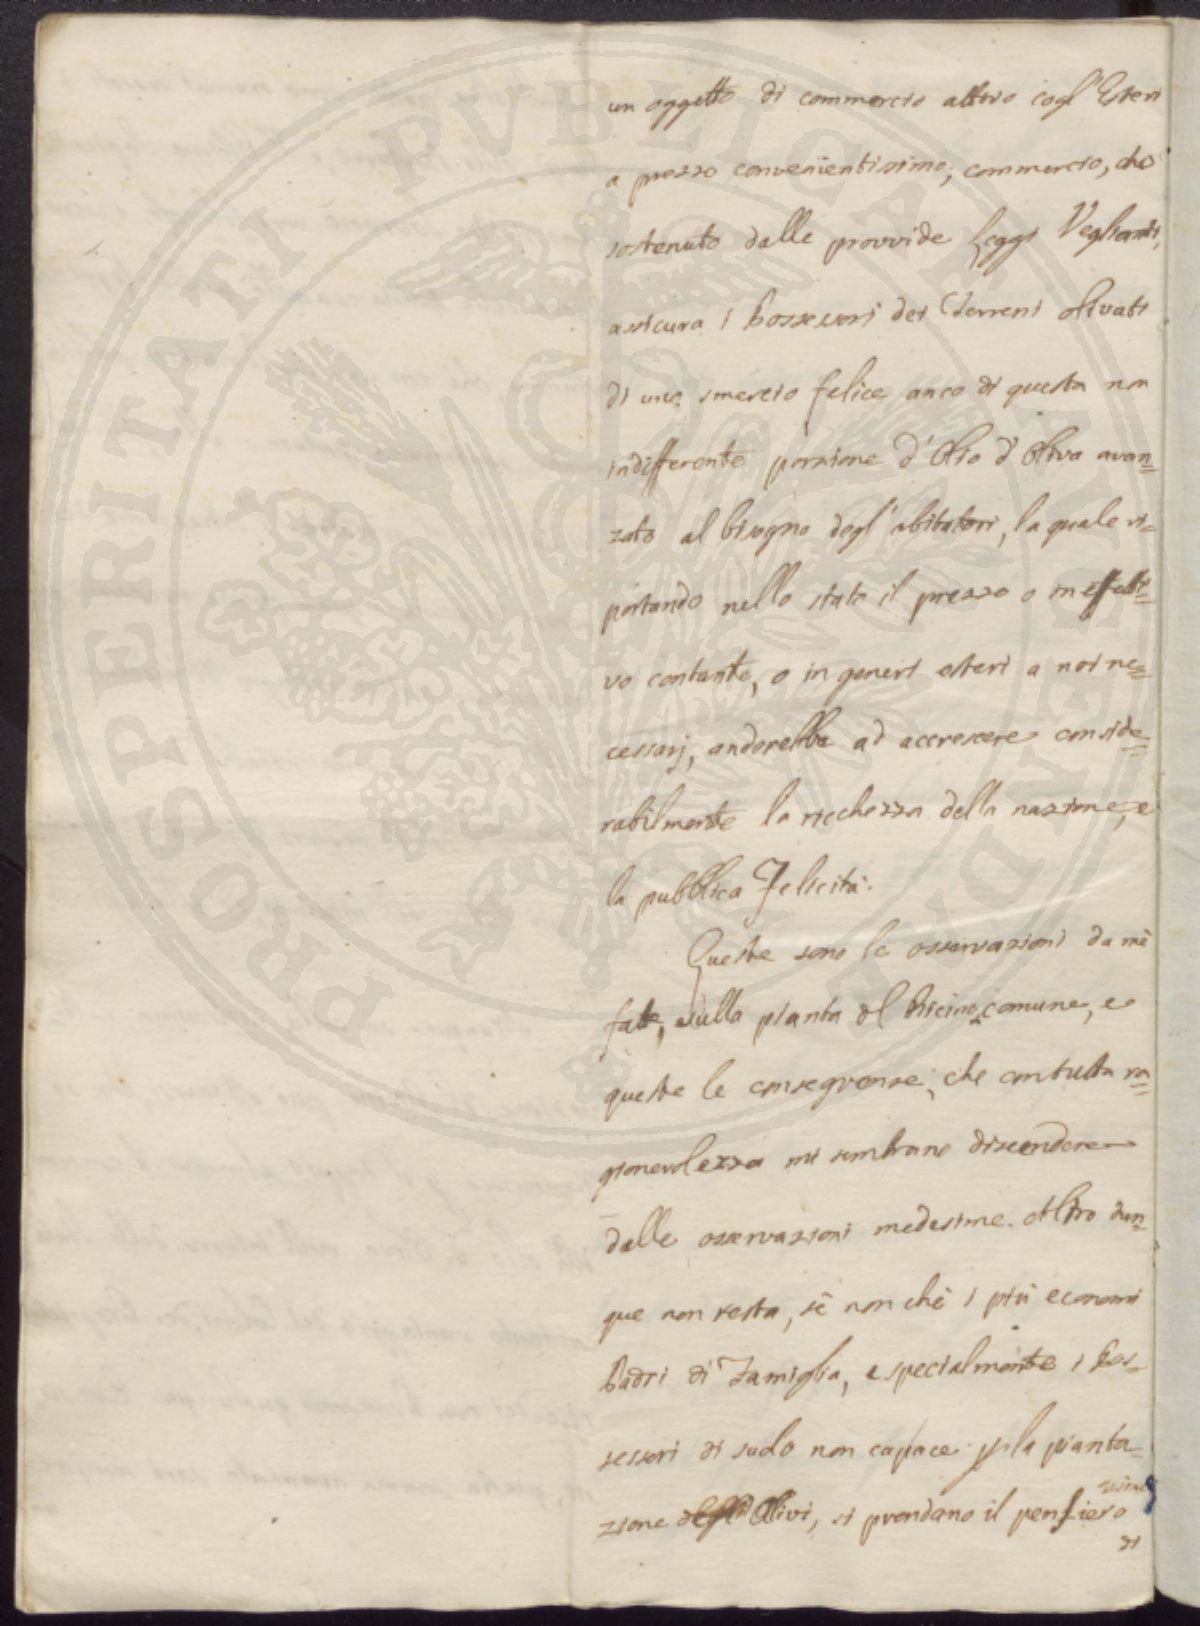 un oggetto di commercio attivo cogl'Esteri
a prezzo convenientissimo; commercio, che
sostenuto dalle provvide Leggi Veglianti,
assicura i Possessori dei Terreni olivati
di uno smercio felice anco di questa non
indifferente porzione d'Olio d'Oliva avan=
zato al bisogno degl'abitatori, la quale ri=
portando nello stato il prezzo o in effetti=
vo contante, o in generi esteri a noi ne=
cessarj, anderebbe ad accrescere conside=
rabilmente la ricchezza della nazione, e
la pubblica Felicità.
Queste sono le osservazioni da mè
fatte, sulla pianta del Ricino comune, e
queste le conseguenze, che con tutta ra=
gionevolezza mi sembrano discendere
dalle osservazioni medesime. Altro dun=
que non resta, sè non chè i più economi
Padri di Famiglia, e specialmente i Pos=
sessori di suolo non capace p la pianta=
zione degli Olivi, si prendano il pensiero
di
PROSPERITATI PVBLICAE AVGENDAE